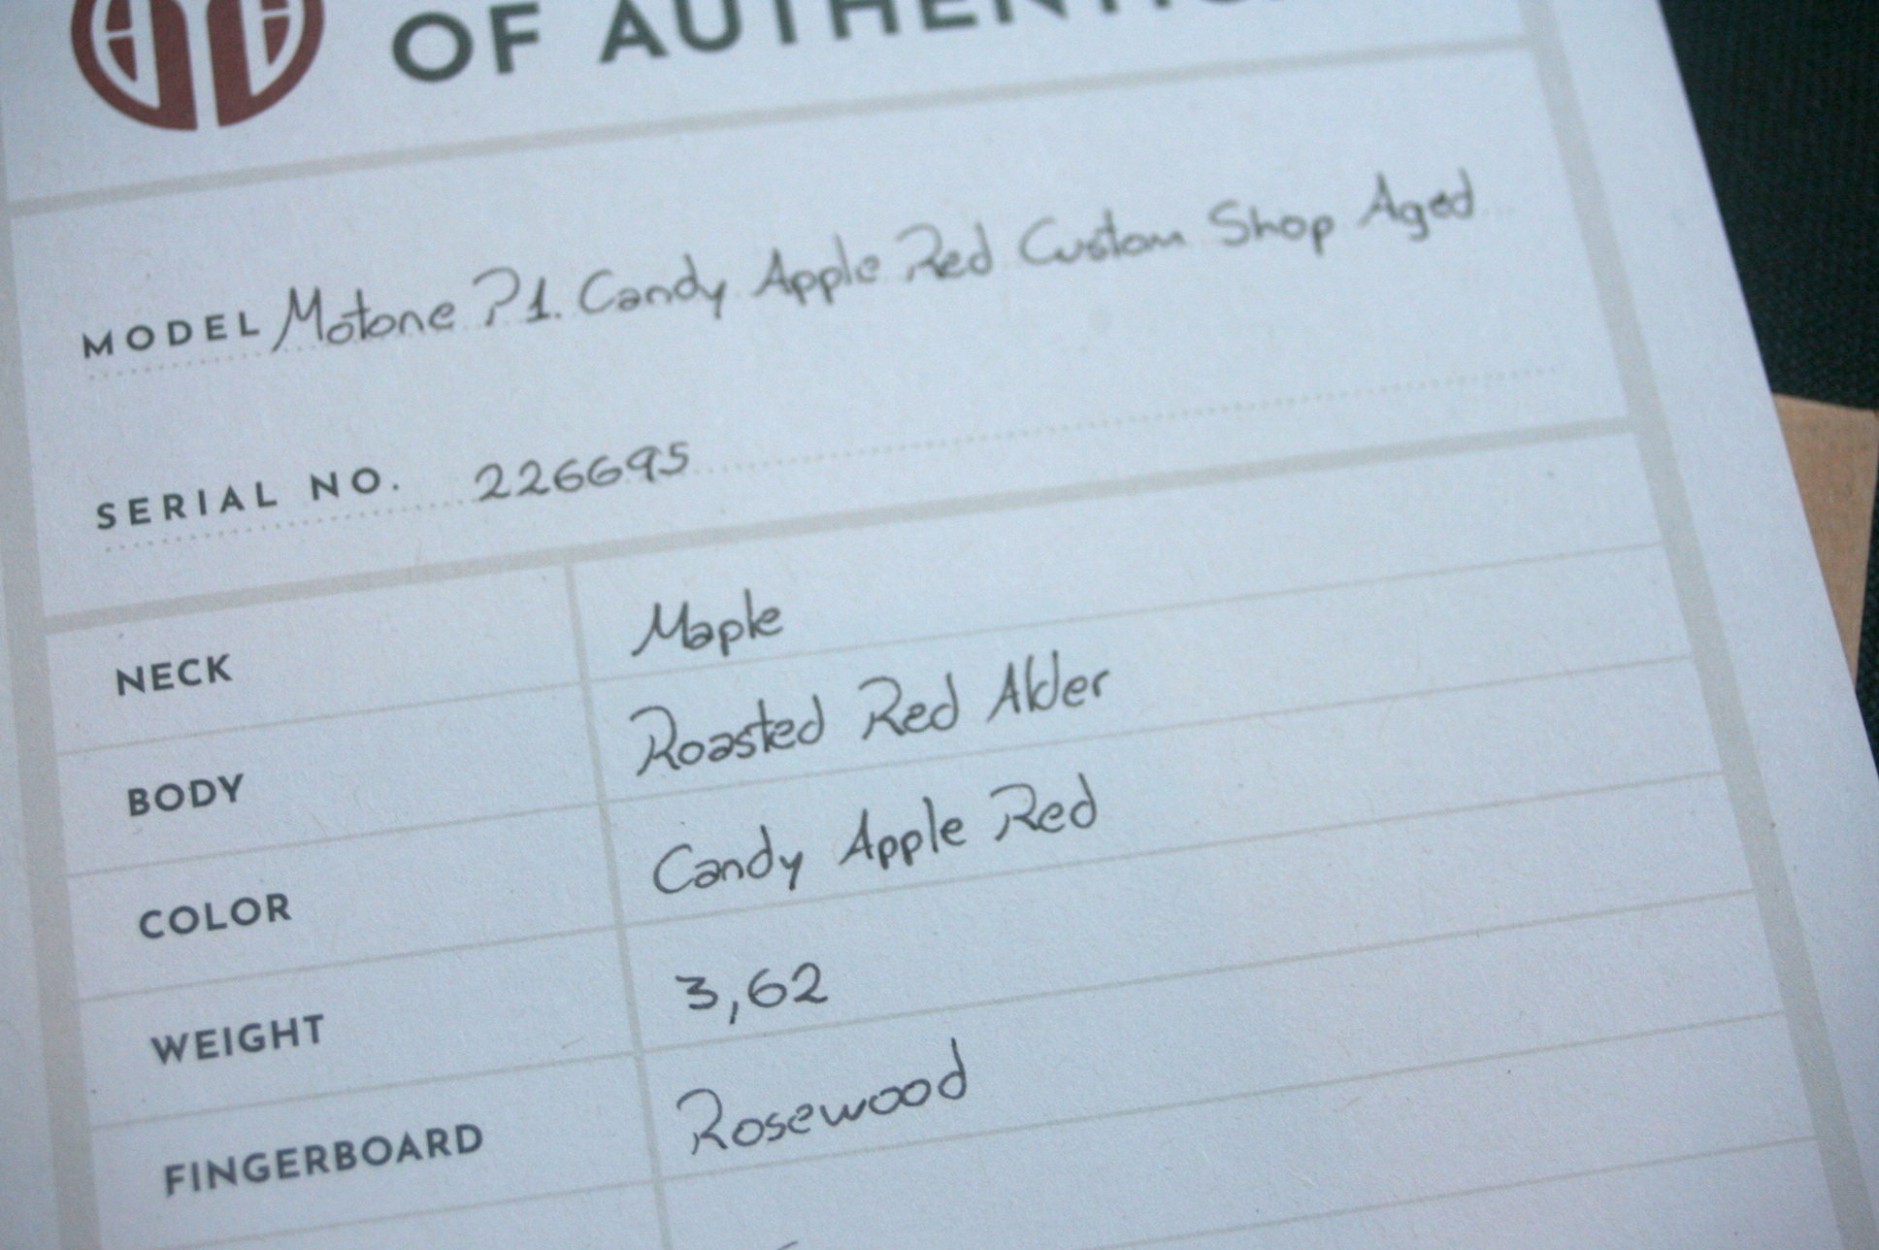 OF AUTHENTIC
MODEL Motone P1. Candy Apple Red Custom Shop Aged
SERIAL NO. 226695
NECK Maple
BODY Roasted Red Alder
COLOR Candy Apple Red
WEIGHT 3,62
FINGERBOARD Rosewood